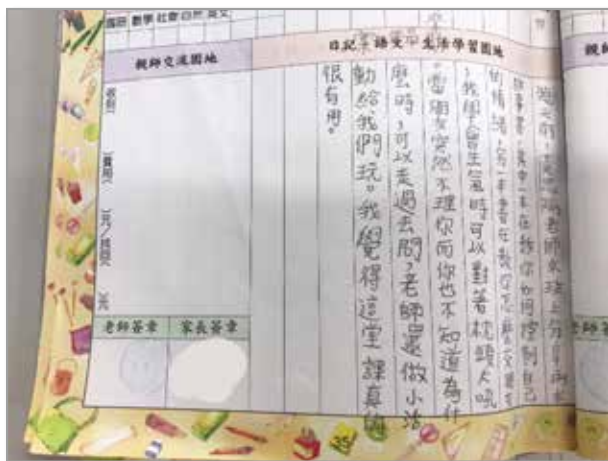 國語 數學 社會 自然 英文
親師交流園地
日記、語文、生活學習園地
老師來班上分享兩本
故事書,其中一本在教你如何控制自己
的情緒,另一本書在教你怎麼交朋友
,我學會生氣時可以對著枕頭大吼
。當朋友突然不理你而你也不知道為什
麼時,可以走過去問,老師還做小活
動給我們玩。我覺得這堂課真的
很有用。
收到
費用
元/找回
元
老師簽章
家長簽章
35